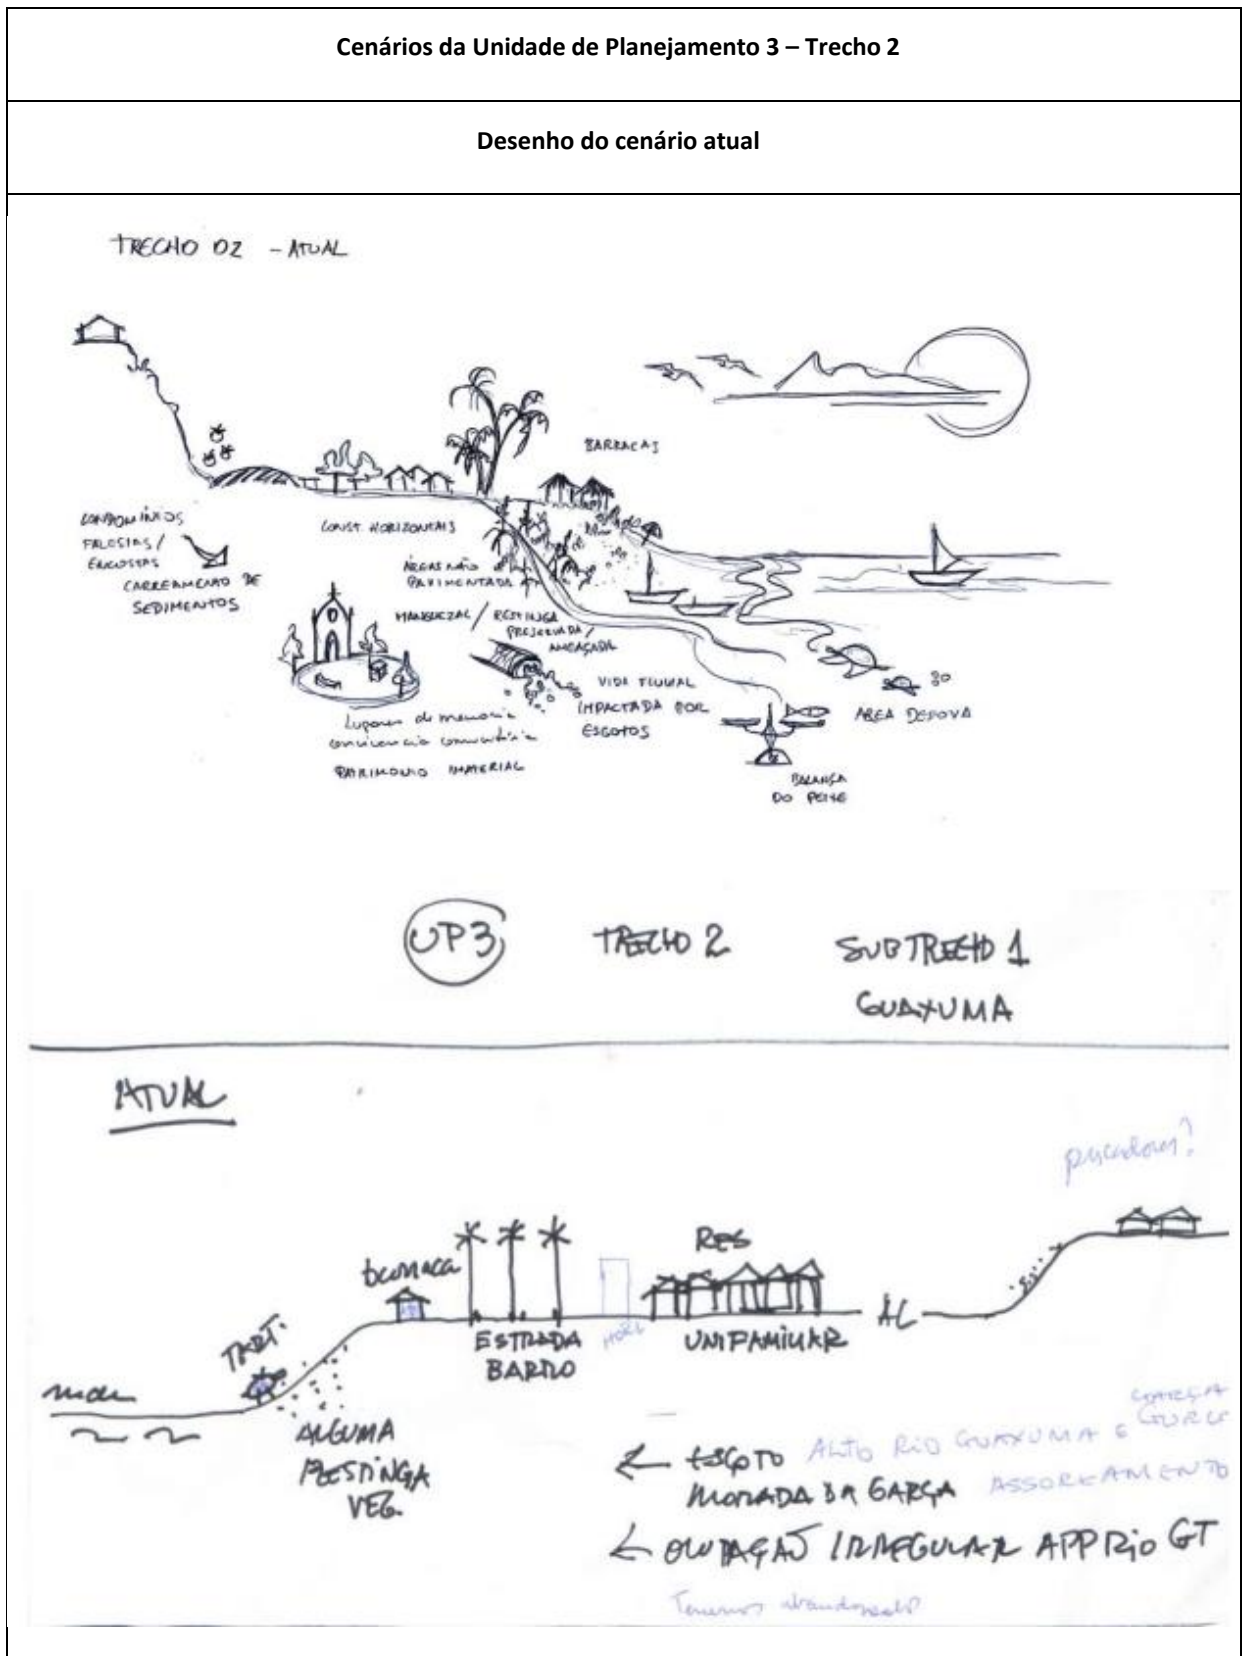 Cenários da Unidade de Planejamento 3 – Trecho 2
Desenho do cenário atual
TRECHO 02 - ATUAL
BARRACAS
CONDOMÍNIOS
FALÉSIAS /
ENCOSTAS
CARREAMENTO DE
SEDIMENTOS
CONST. HORIZONTAIS
ÁREAS NÃO
PAVIMENTADA
MANGUEZAL / RESTINGA
PRESERVADA /
AMEAÇADA
VIDA FLUVIAL
IMPACTADA POR
ESGOTOS
Lugares de memória
convivência comunitária
PATRIMONIO IMATERIAL
AREA DESOVA
BALANÇA
DO PEIXE
UP3
TRECHO 2
SUBTRECHO 1
GUAXUMA
ATUAL
pescadores?
barraca
RES
TART.
mar
ESTRADA
BARRO
UNIFAMILIAR
AL
ALGUMA
RESTINGA
VEG.
← ESGOTO ALTO RIO GUAXUMA e GARÇA
MORADA DA GARÇA ASSOREAMENTO
← OCUPAÇÃO IRREGULAR APP RIO GT
Terrenos abandonados